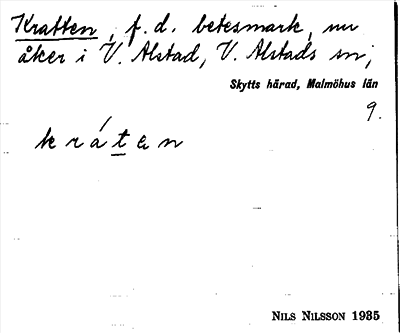 Kratten, f.d. betesmark, nu
åker i V. Alstad, V. Alstads sn;
Skytts härad, Malmöhus län
9.
kráten
NILS NILSSON 1935